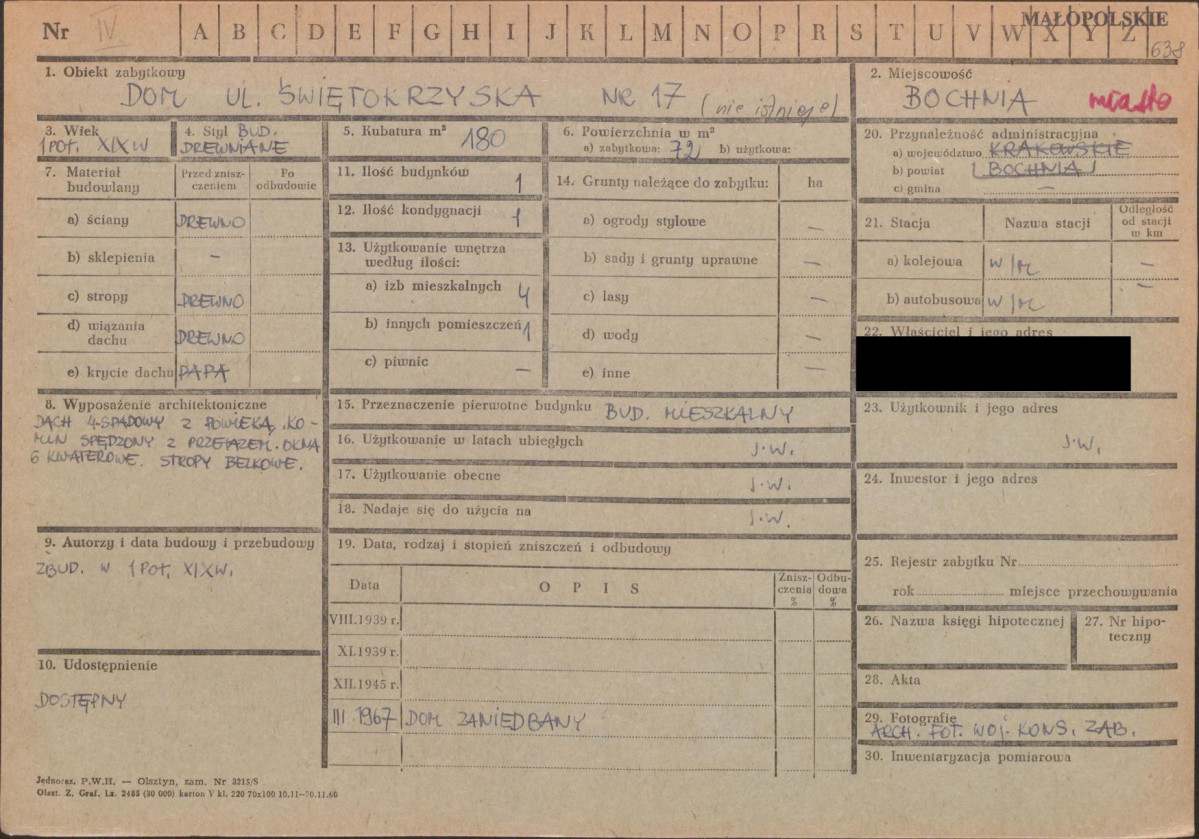 Nr IV A B C D E F G H I J K L M N O P R S T U V W X Y Z
MAŁOPOLSKIE
638
1. Obiekt zabytkowy
DOM UL. ŚWIĘTOKRZYSKA NR 17 (nie istnieje)
2. Miejscowość
BOCHNIA miasto
3. Wiek
1 POŁ. XIX W
4. Styl BUD.
DREWNIANE
5. Kubatura m³
180
6. Powierzchnia w m²
a) zabytkowa: 72 b) użytkowa:
20. Przynależność administracyjna
a) województwo KRAKOWSKIE
b) powiat BOCHNIA
c) gmina —
7. Materiał budowlany
Przed zniszczeniem
Po odbudowie
a) ściany DREWNO
b) sklepienia —
c) stropy DREWNO
d) wiązania dachu DREWNO
e) krycie dachu PAPA
11. Ilość budynków 1
12. Ilość kondygnacji 1
13. Użytkowanie wnętrza
według ilości:
a) izb mieszkalnych 4
b) innych pomieszczeń 1
c) piwnic —
14. Grunty należące do zabytku: ha
a) ogrody stylowe —
b) sady i grunty uprawne —
c) lasy —
d) wody —
e) inne —
21. Stacja Nazwa stacji Odległość od stacji w km
a) kolejowa W/M —
b) autobusowa W/M —
22. Właściciel i jego adres
8. Wyposażenie architektoniczne
DACH 4-SPADOWY Z POWIEKĄ, KO-
MIN SPĘDZONY Z PRZEŁAZEM. OKNA
6 KWATEROWE. STROPY BELKOWE.
15. Przeznaczenie pierwotne budynku BUD. MIESZKALNY
16. Użytkowanie w latach ubiegłych J.W.
17. Użytkowanie obecne J.W.
18. Nadaje się do użycia na J.W.
23. Użytkownik i jego adres
J.W.
24. Inwestor i jego adres
9. Autorzy i data budowy i przebudowy
ZBUD. W 1 POŁ. XIX W.
19. Data, rodzaj i stopień zniszczeń i odbudowy
Data OPIS Zniszczenia % Odbudowa %
VIII.1939 r.
XI.1939 r.
XII.1945 r.
III.1967 DOM ZANIEDBANY
25. Rejestr zabytku Nr
rok miejsce przechowywania
26. Nazwa księgi hipotecznej
27. Nr hipoteczny
10. Udostępnienie
DOSTĘPNY
28. Akta
29. Fotografie
ARCH. FOT. WOJ. KONS. ZAB.
30. Inwentaryzacja pomiarowa
Jednoraz. P.W.H. — Olsztyn, zam. Nr 3215/S
Olszt. Z. Graf. Lz. 2485 (30 000) karton V kl. 220 70x100 10.11—30.11.60